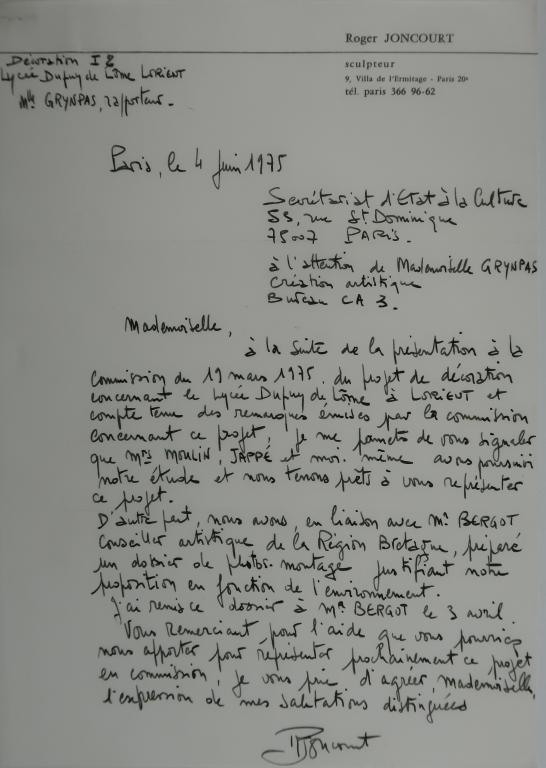 Roger JONCOURT
sculpteur
9, Villa de l'Ermitage - Paris 20e
tél. paris 366 96-62
Décoration I 2
Lycée Dupuy de Lôme LORIENT
Mlle GRYNPAS, rapporteur.
Paris, le 4 Juin 1975
Secrétariat d'Etat à la Culture
53, rue St Dominique
75007 PARIS.
à l'attention de Mademoiselle GRYNPAS
Création artistique
Bureau CA 3.
Mademoiselle,
à la suite de la présentation à la
Commission du 19 mars 1975. du projet de décoration
concernant le Lycée Dupuy de Lôme à LORIENT et
compte tenu des remarques émises par la commission
concernant ce projet, je me permets de vous signaler
que Mrs MOULIN, JAPPÉ et moi-même avons poursuivi
notre étude et nous tenons prêts à vous représenter
ce projet.
D'autre part, nous avons, en liaison avec Mr BERGOT
Conseiller artistique de la Région Bretagne, préparé
un dossier de photos-montage justifiant notre
proposition en fonction de l'environnement.
J'ai remis ce dossier à Mr BERGOT le 3 avril
Vous Remerciant pour l'aide que vous pourriez
nous apporter pour représenter prochainement ce projet
en commission, je vous prie d'agréer, mademoiselle,
l'expression de mes salutations distinguées
RJoncourt